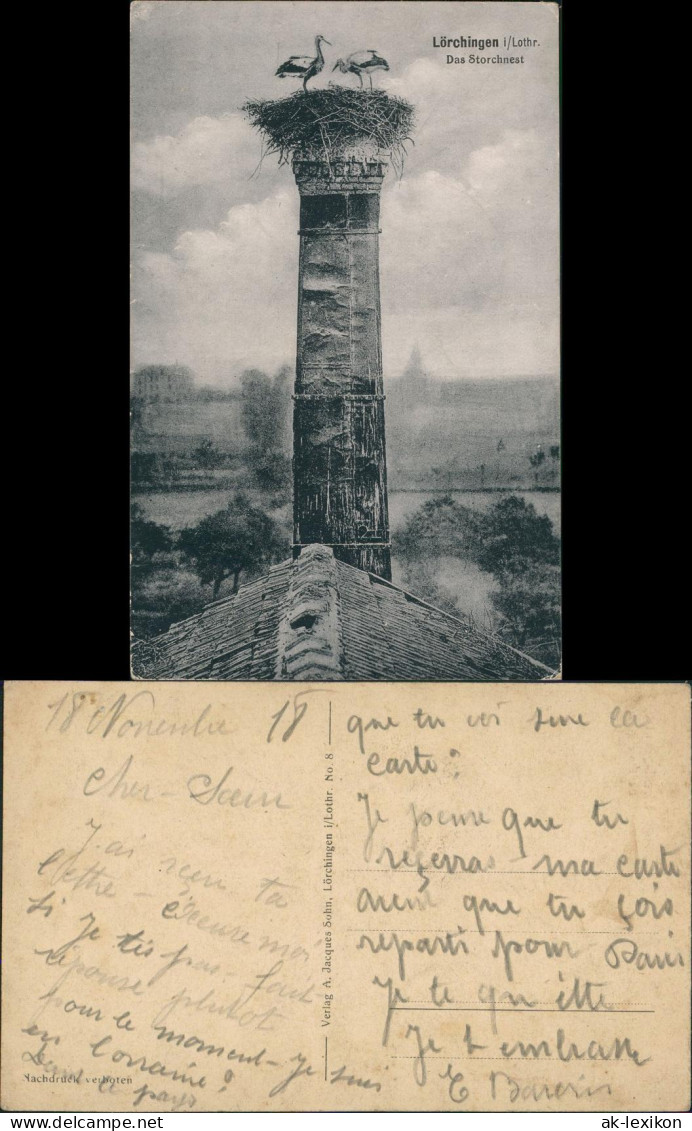 Lörchingen i/Lothr.
Das Storchnest
18 Novembre 18
Cher - Sœur
J'ai reçu ta
lettre - Excuse moi
si je tis pas fait
reponse plutot
pour le moment - Je suis
en Lorraine
Dans le pays
Nachdruck verboten
Verlag A. Jacques Sohn, Lörchingen i/Lothr. No. 8
que tu voi sure la
carte.
Je pense que tu
reçerras ma carte
avent que tu sois
reparti pour Paris
Je te quitte
Je t'embrasse
E
www.delcampe.net
ak-lexikon